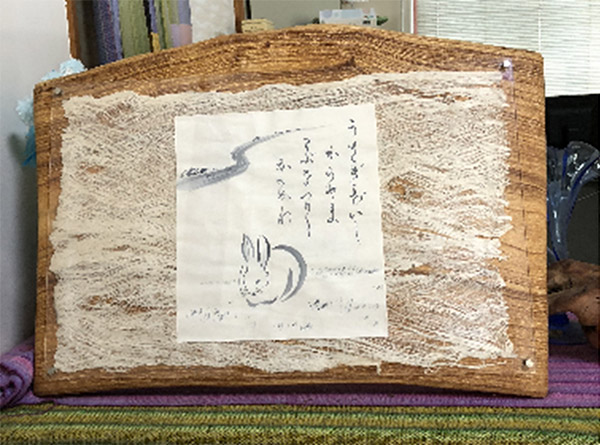 うさぎおいし
かのやま
こぶなつりし
かのかわ